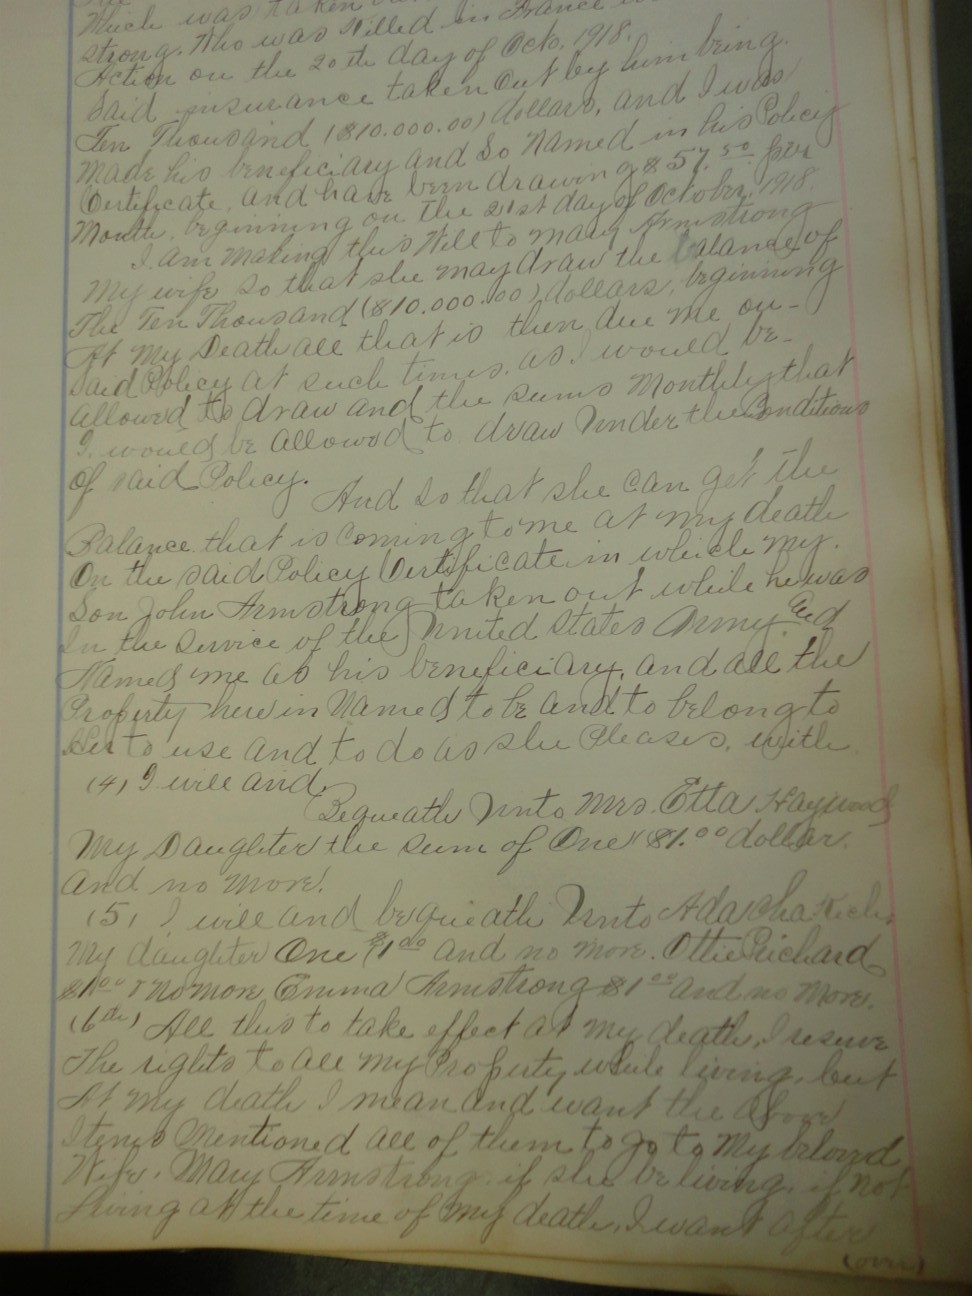 Which was taken
strong. Who was Killed in France in
Action on the 20th day of Octo. 1918.
Said insurance taken out by him being.
Ten Thousand ($10.000.00) dollars, and I was
Made his beneficiary and So Named in his Policy
Certificate, and have been drawing $57.50 per
Month, beginning on the 21st day of October, 1918.
I am Making this Will to Mary Armstrong
My wife so that she may draw the balance of
The Ten Thousand ($10.000.00) dollars, beginning
At My Death all that is then due me on-
Said Policy at such times, as I would be-
allowed to draw and the sums Monthly that
I would be allowed to draw Under the Conditions
Of said Policy.
And so that she can get the
Balance that is Coming to me at my death
On the said Policy Certificate in which my.
Son John Armstrong taken out while he was
In the service of the United States Army And
Named me as his beneficiary, and all the
Property herein Named to be and to belong to
Her to use and to do as she Pleases, with
(4) I will and
Bequeath Unto Mrs. Etta Haywood
My Daughter the sum of One ($1.00 dollar.
And no More.
(5) I will and bequeath Unto Ada
My daughter One $1 00 and no more. Ottie Richard
$1 00 & No more Emma Armstrong $1 00 and no More.
(6th) All this to take effect at my death, I reserve
The rights to all my Property while living, but
At my death I mean and want the above
Items Mentioned all of them to go to My beloved
Wife. Mary Armstrong. if she be living, if not
Living at the time of my death, I want after
(over)